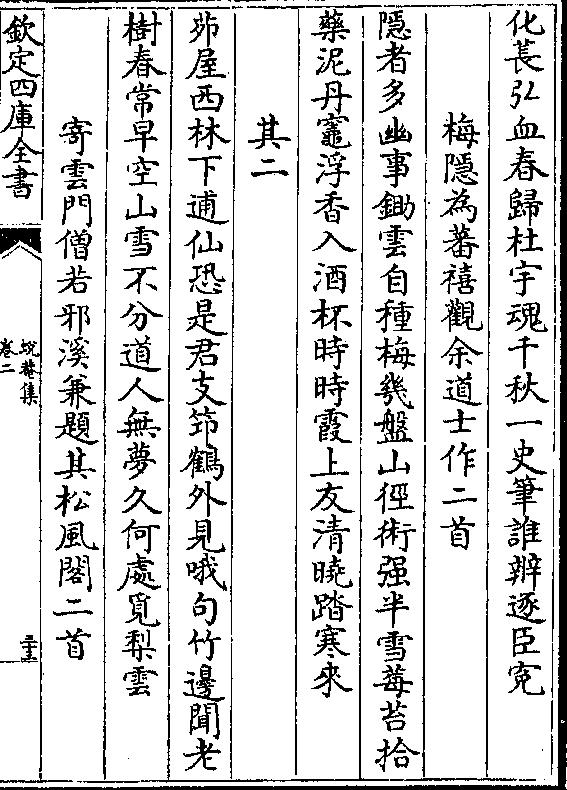 化萇弘血春歸杜宇魂千秋一史筆誰辨逐臣寃
梅隱為蕃禧觀余道士作二首
隱者多幽事鋤雲自種梅幾盤山徑術强半雪莓苔拾
藥泥丹竈浮香入酒杯時時霞上友清曉踏寒來
其二
茆屋西林下逋仙恐是君支笻鶴外見哦句竹邊聞老
樹春常早空山雪不分道人無夢久何處覓梨雲
寄雲門僧若邪溪兼題其松風閣二首
欽定四庫全書
蛻菴集
卷二
二十三